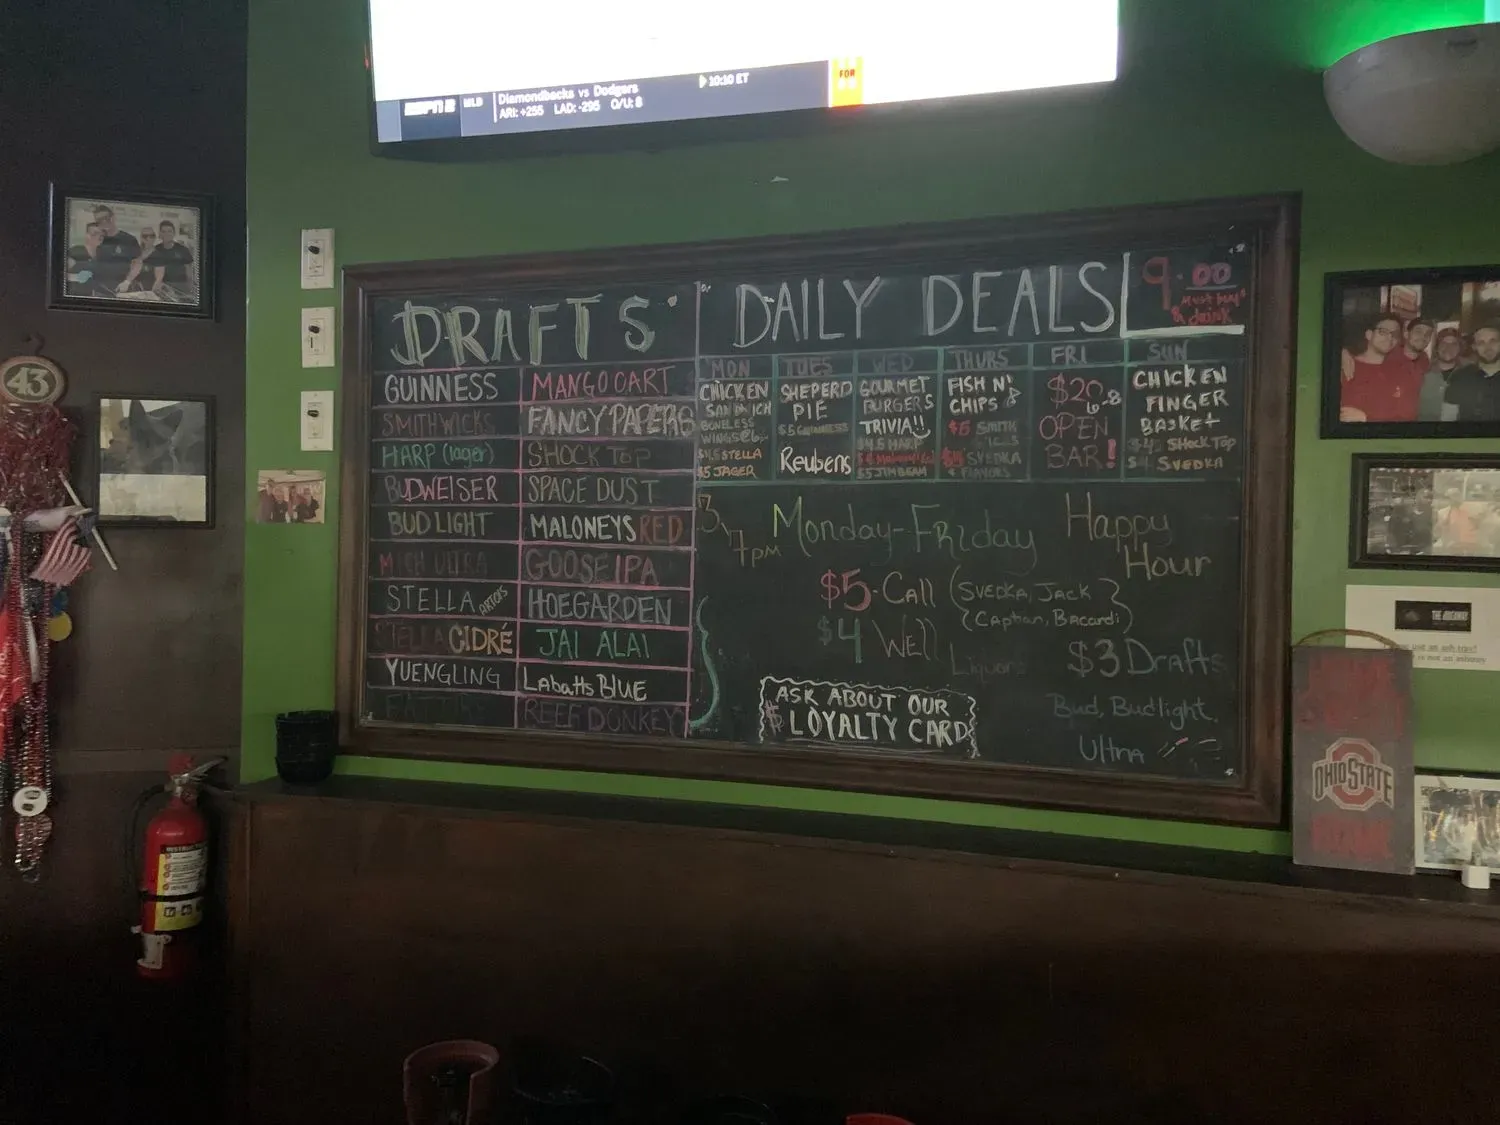 ESPN2 MLB Diamondbacks vs Dodgers 10:10 ET
ARI: +255 LAD: -295 O/U: 8
FOR
43
DRAFTS
GUINNESS MANGO CART
SMITHWICKS FANCY PAPERS
HARP (lager) SHOCK TOP
BUDWEISER SPACE DUST
BUD LIGHT MALONEYS RED
MICH ULTRA GOOSE IPA
STELLA ARTOIS HOEGARDEN
STELLA CIDRÉ JAI ALAI
YUENGLING LABATTS BLUE
REEF DONKEY
DAILY DEALS
9.00
Must buy
& drink
MON
CHICKEN
SANDWICH
BONELESS
WINGS
STELLA
$5 JAGER
TUES
SHEPERD
PIE
$5 GUINNESS
Reubens
WED
GOURMET
BURGERS
TRIVIA!!
$4.5 HARP
$5 JIM BEAM
THURS
FISH N'
CHIPS
$5 SMITH
$4 SVEDKA
FLAVORS
FRI
$20
6-8
OPEN
BAR!
SUN
CHICKEN
FINGER
BASKET
SHOCK TOP
$4 SVEDKA
3-7pm Monday-Friday Happy
Hour
$5-Call (SVEDKA, JACK
(Captian, Bacardi)
$4 Well
Liquors
$3 Drafts
Bud, Budlight,
Ultra
ASK ABOUT OUR
LOYALTY CARD
THE HIDEAWAY
use an ash tray!
is not an ashtray
OHIO STATE